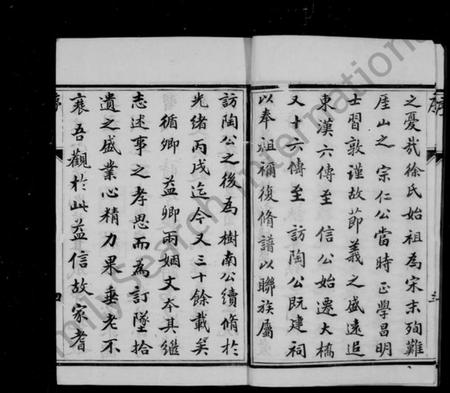 序
三
之憂哉徐氏始祖為宋末殉難
厓山之 宗仁公當時正學昌明
士習敦謹故節義之盛遠追
東漢六傳至 信公始遷大橋
又十六傳至 訪陶公既建祠
以奉祖禰復脩譜以聯族屬
訪陶公之後為 樹南公續脩於
光緒丙戌迄今又三十餘載矣
循卿 益卿兩姻丈本其繼
志述事之孝思而為訂墜拾
遺之盛業心精力果垂老不
衰吾觀於此益信故家耆
序
四
FamilySearch International